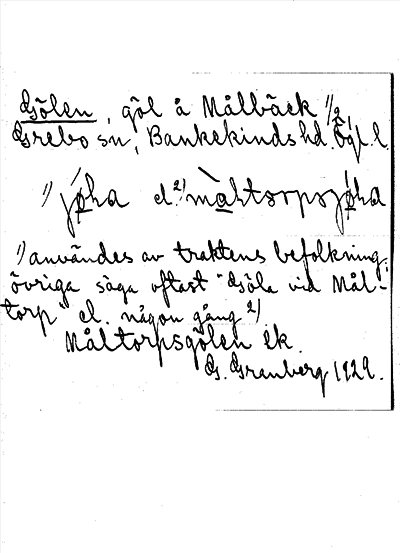 Gölen, göl å Målbäck 1/2
Grebo sn, Bankekinds hd. Ögl. l.
1) jøha el. 2) mahtorpsjøha
1) användes av traktens befolkning;
övriga säga oftast "Göla vid Mål-
torp" el. någon gång 2)
Måltorpsgölen ek.
G. Granberg 1929.